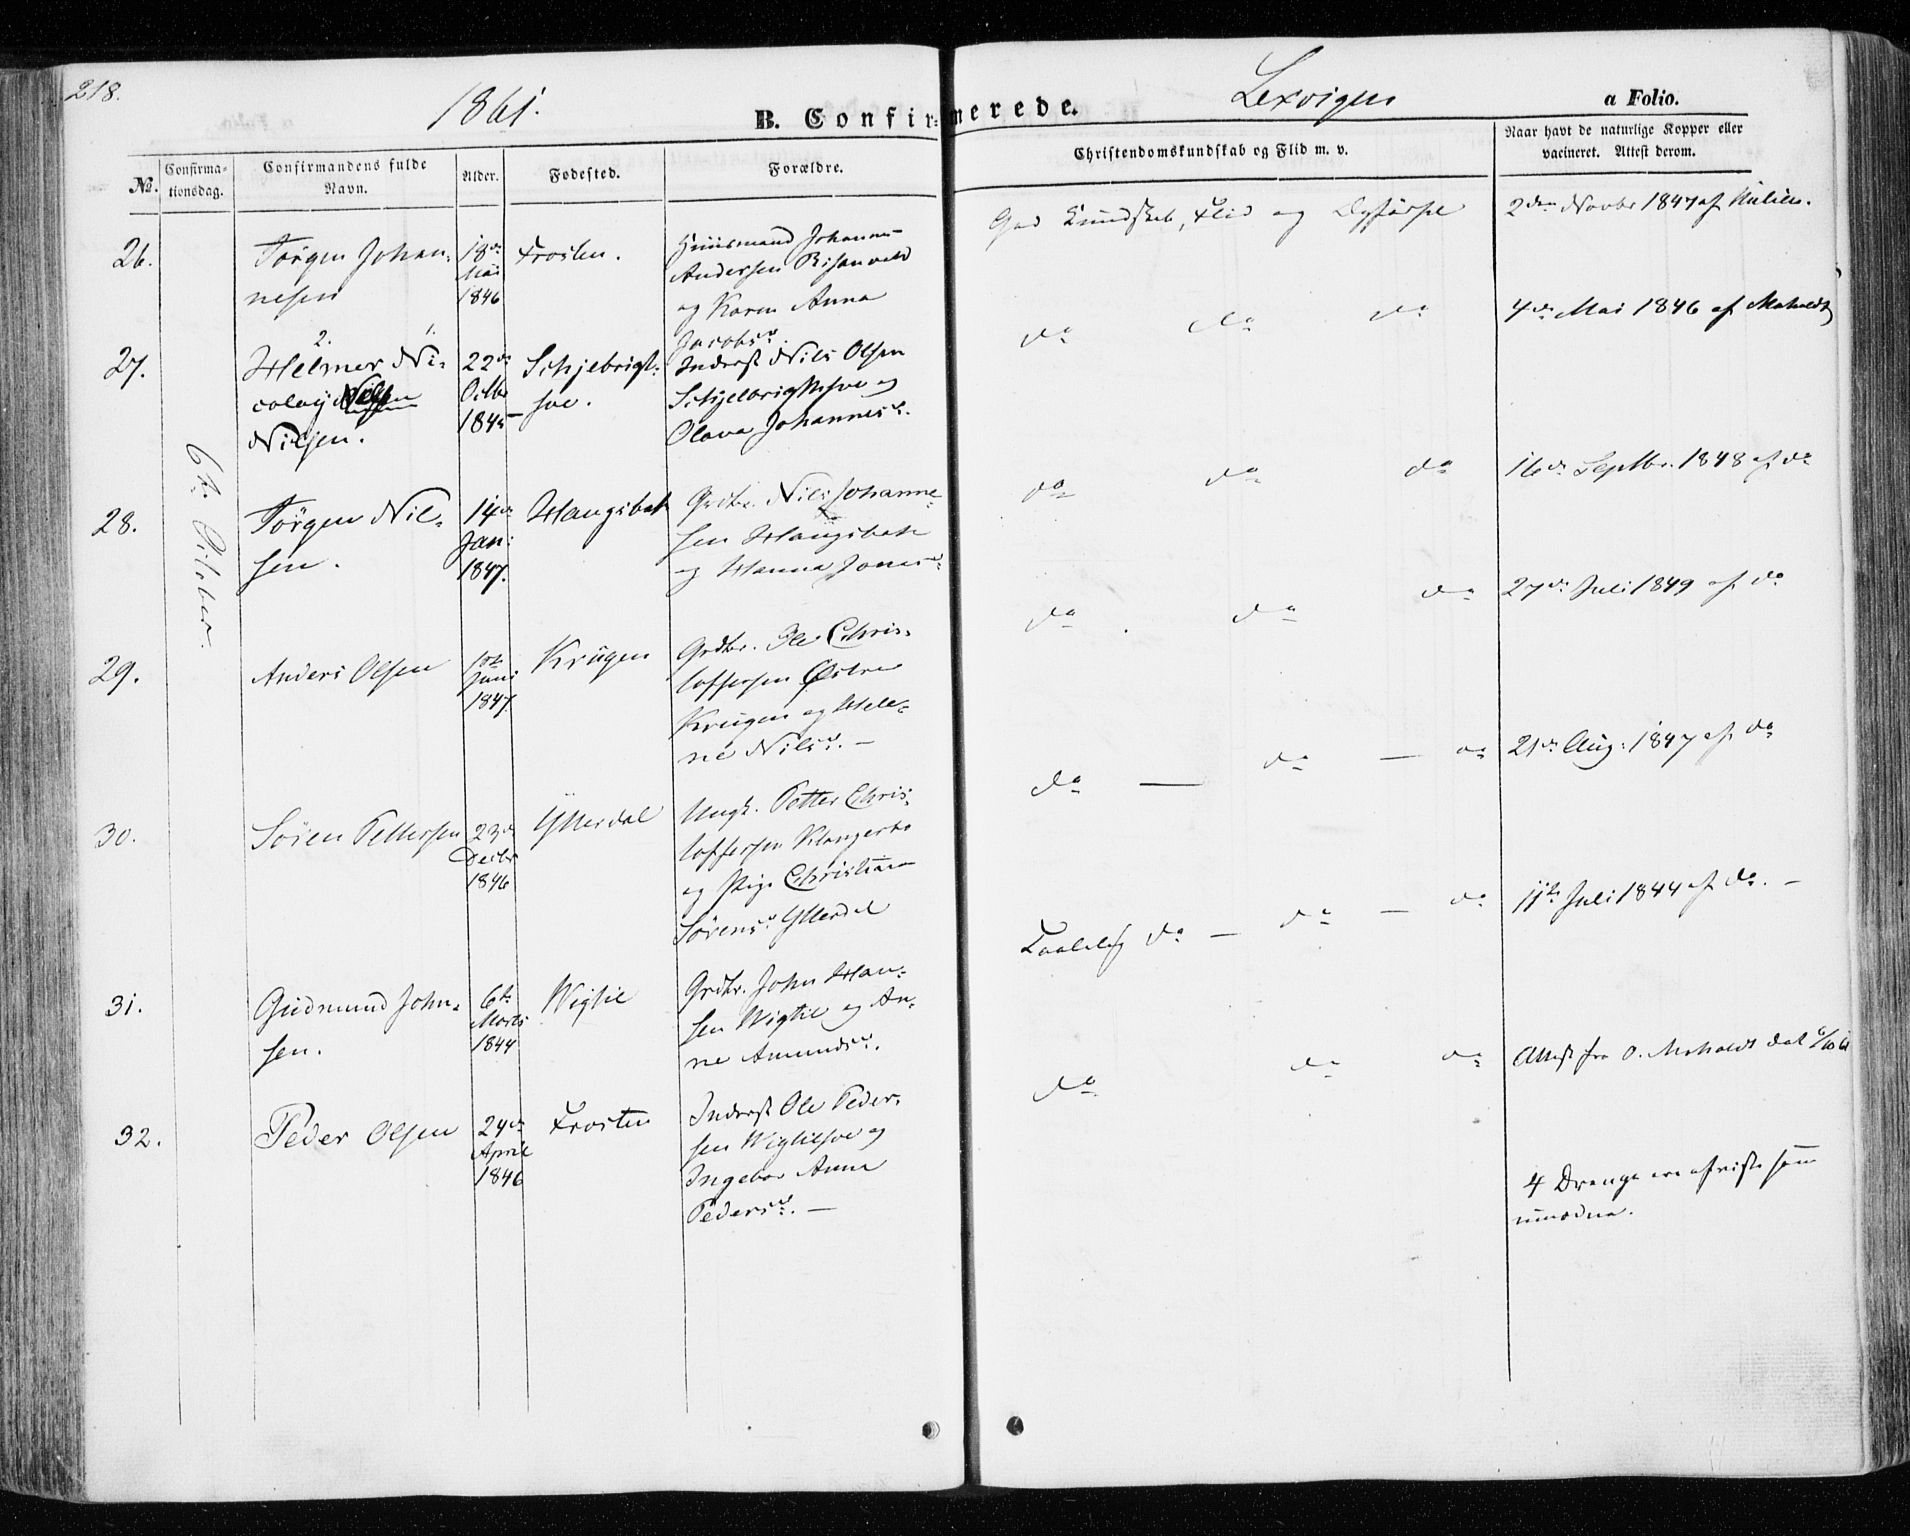 218.
1861.
B. Confirmerede.
Lexvigen
a Folio.
No.
Confirmationsdag.
Confirmandens fulde Navn.
Alder.
Fødested.
Forældre.
Christendomskundskab og Flid m. v.
Naar havt de naturlige Kopper eller
vaccineret. Attest derom.
6te October.
26.
Jörgen Johan-
nesen
18de
Mai
1846
Frosten.
Huusmand Johannes
Andersen
og Karen Anna
Jacobsd.
God Kundskab, Flid og Opførsel
2den Novbr 1847 af
27.
2. 1.
Helmer Ni-
colay
Nilsen.
22de
Octbr
184
Schjebrigt-
sve.
Inderst Nils Olsen
og
Olava Johannesd.
do do do
4de Mai 1846 af
28.
Jörgen Nil-
sen.
14de
Jan:
1847.
Hangsbak
Grdbr. Nils Johanne-
sen Hangsbak
og Hanna Jonsd.
do do do
16de Septbr. 1848 af do
29.
Anders Olsen
1ste
Juni
1847.
Krügen
Grdbr. Ole Chris-
toffersen Østre
Krügen og Hele-
ne Nilsd. —
do do do
27de Juli 1849 af do
30.
Sören Pettersen
23de
Decbr
1846
Ytterdal
Ungk. Petter Chris-
toffersen
og Pige Christiane
Sørensd. Ytterdal
do — do — do
21de Aug: 1847 af do
31.
Gudmund John-
sen.
6te
Marts
1844
Wigtil
Grdbr. John Han-
sen Wigtil og An-
ne Amundsd.
Taalelig do — do — do
11te Juli 1844 af do. —
32.
Peder Olsen
24de
April
1846
Frosten
Inderst Ole Peder-
sen og
Ingebor Anna
Pedersd. —
do do do
Attest fra O. dat 6/10 61
4 Drenge ere afviste som
umodne.